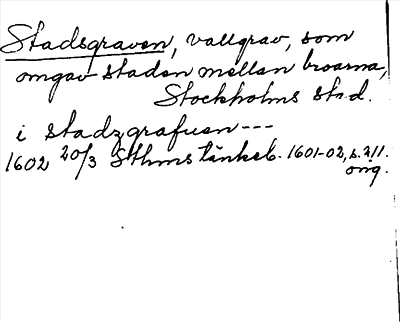 Stadsgraven, vallgrav, som
omgav staden mellan broarna,
Stockholms stad.
i stadzgrafuen---
1602 20/3 Sthms tänkeb. 1601-02, s. 211.
orig.